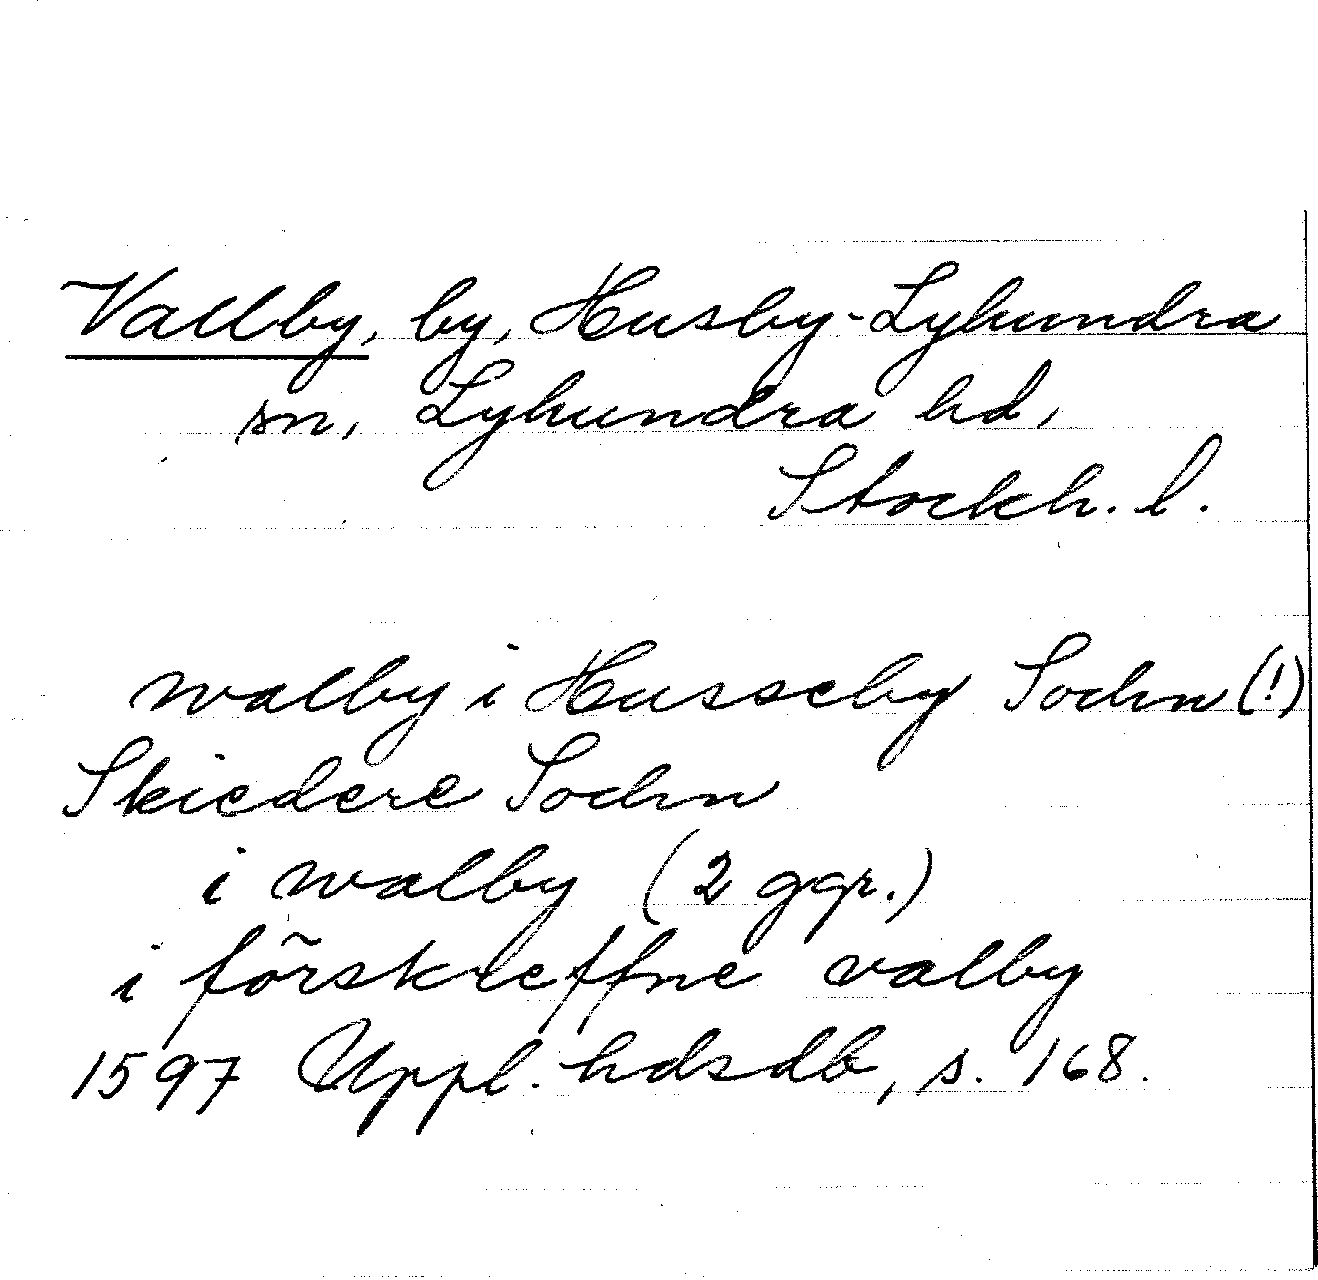 Vallby, by, Husby-Lyhundra
sn, Lyhundra hd,
Stockh. l.
walby i Husseby Sochn (!)
Skiedere Sochn
i walby (2 ggr.)
i förskreffne valby
1597 Uppl. hdsdb, s. 168.